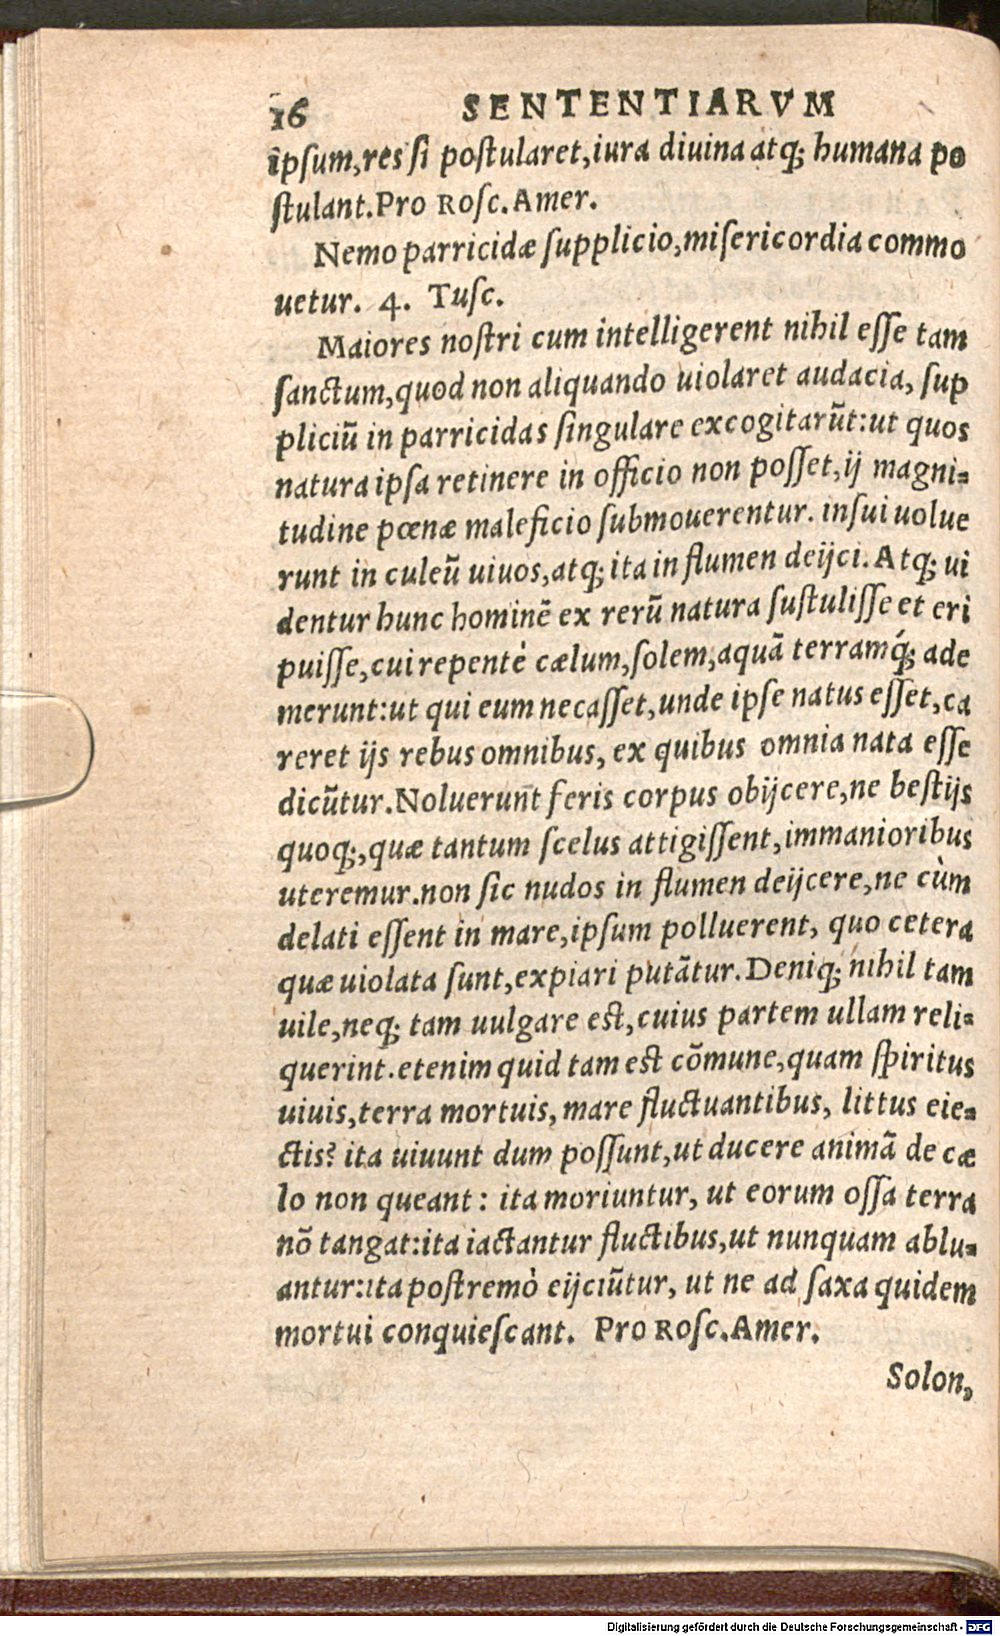 16 SENTENTIARVM
ipsum,res si postularet,iura diuina atq; humana po
stulant.Pro Rosc.Amer.
Nemo parricidæ supplicio,misericordia commo
uetur. 4. Tusc.
Maiores nostri cum intelligerent nihil esse tam
sanctum,quod non aliquando uiolaret audacia, sup
pliciū in parricidas singulare excogitarūt:ut quos
natura ipsa retinere in officio non posset,ij magni-
tudine pœnæ maleficio submouerentur. insui uolue
runt in culeū uiuos,atq; ita in flumen deijci.Atq; ui
dentur hunc hominē ex rerū natura sustulisse et eri
puisse,cui repentè cælum,solem,aquā terramq́; ade
merunt:ut qui eum necasset,unde ipse natus esset,ca
reret ijs rebus omnibus, ex quibus omnia nata esse
dicūtur.Noluerunt feris corpus obijcere,ne bestijs
quoq;,quæ tantum scelus attigissent,immanioribus
uteremur.non sic nudos in flumen deijcere,ne cùm
delati essent in mare,ipsum polluerent, quo cetera
quæ uiolata sunt,expiari putātur.Deniq; nihil tam
uile,neq; tam uulgare est,cuius partem ullam reli-
querint.etenim quid tam est cōmune,quam spiritus
uiuis,terra mortuis, mare fluctuantibus, littus eie-
ctis? ita uiuunt dum possunt,ut ducere animā de cæ
lo non queant: ita moriuntur, ut eorum ossa terra
nō tangat:ita iactantur fluctibus,ut nunquam ablu-
antur:ita postremò eijciūtur, ut ne ad saxa quidem
mortui conquiescant. Pro Rosc.Amer.
Solon,
Digitalisierung gefördert durch die Deutsche Forschungsgemeinschaft - DFG